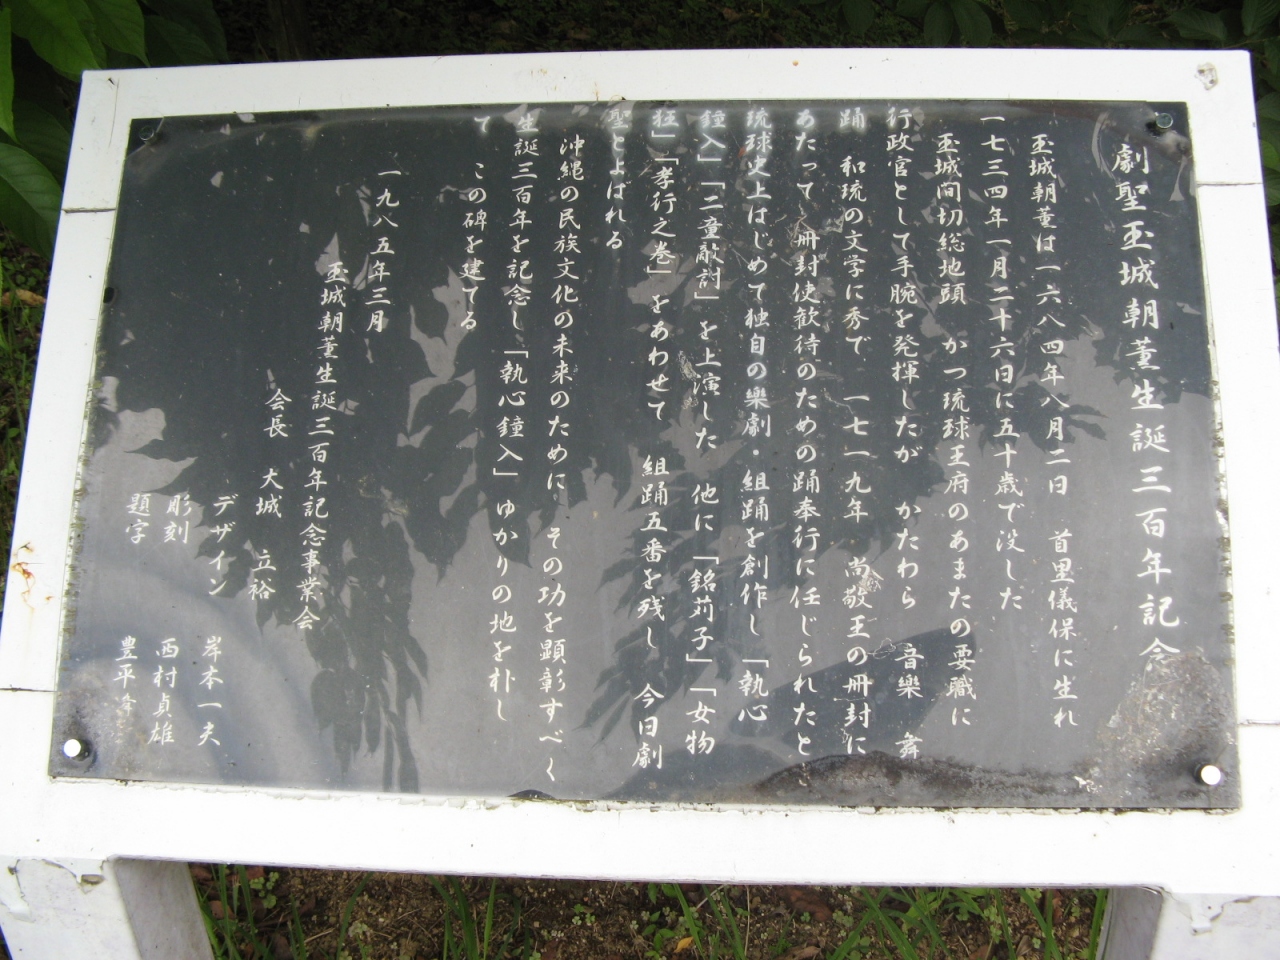 劇聖玉城朝薫生誕三百年記念
玉城朝薫は一六八四年八月二日　首里儀保に生れ
一七三四年一月二十六日に五十歳で没した
玉城間切総地頭　かつ琉球王府のあまたの要職に
行政官として手腕を発揮したが　かたわら　音樂　舞
踊　和琉の文学に秀で　一七一九年　尚敬王の冊封に
あたって　冊封使歓待のための踊奉行に任じられたとき
琉球史上はじめて独自の樂劇・組踊を創作し「執心
鐘入」「二童敵討」を上演した　他に「銘苅子」「女物
狂」「孝行之巻」をあわせて　組踊五番を残し　今日劇
聖とよばれる
沖縄の民族文化の未来のために　その功を顕彰すべく
生誕三百年を記念し「執心鐘入」ゆかりの地を朴し
て　この碑を建てる
一九八五年三月
玉城朝薫生誕三百年記念事業会
会長　大城　立裕
デザイン　岸本一夫
彫刻　西村貞雄
題字　豊平